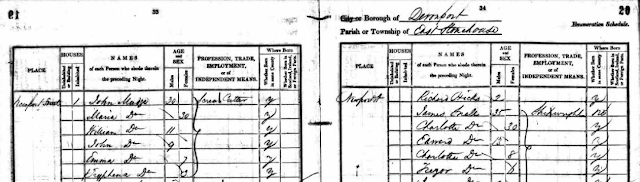 33
PLACE
HOUSES
Uninhabited or Building
Inhabited
NAMES
of each Person who abode therein the preceding Night.
AGE and SEX
Males
Females
PROFESSION, TRADE, EMPLOYMENT, or of INDEPENDENT MEANS.
Where Born
Whether Born in same County
Whether Born in Scotland, Ireland, or Foreign Parts.
Newport Street 1 John Mudge 30 y
Maria Do 30 y
William Do 11 y
John Do 9 y
Emma Do 7 y
Tryphena Do 3 y
34
20
City or Borough of Devonport
Parish or Township of East Stonehouse
Enumeration Schedule.
PLACE
HOUSES
Uninhabited or Building
Inhabited
NAMES
of each Person who abode therein the preceding Night.
AGE and SEX
Males
Females
PROFESSION, TRADE, EMPLOYMENT, or of INDEPENDENT MEANS.
Where Born
Whether Born in same County
Whether Born in Scotland, Ireland, or Foreign Parts.
Newport St Richard Hicks 2 y
James 35 Shipwright no
Charlotte Do 30 y
Edward Do y
Charlotte Do 8 y
Do 6 y